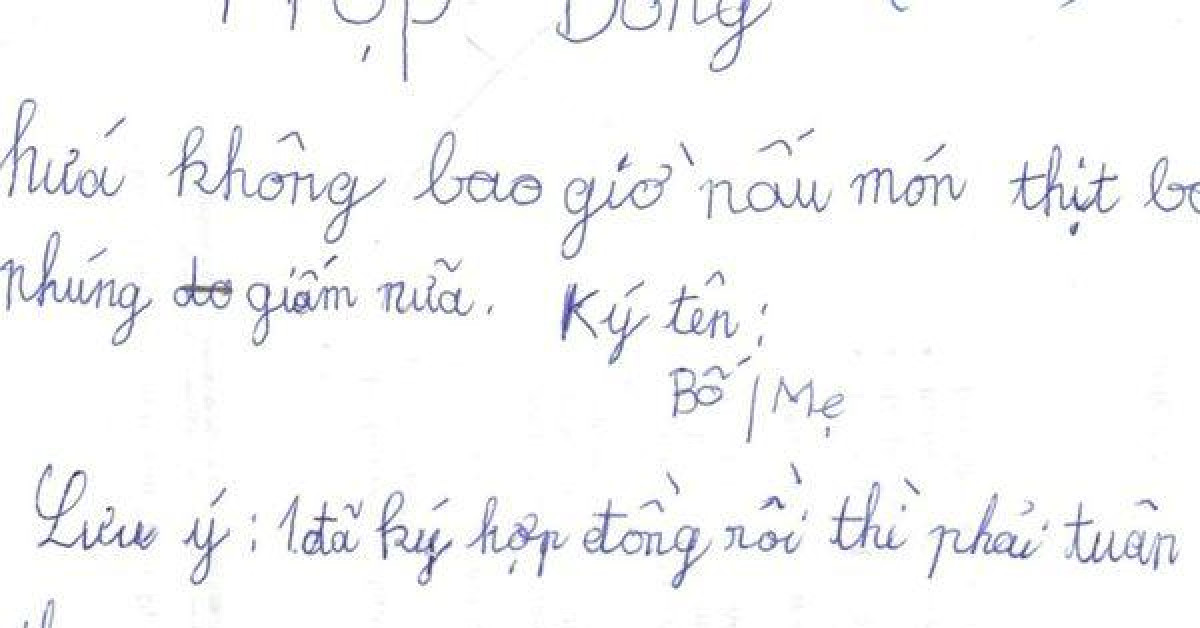 Hợp Đồng
hứa không bao giờ nấu món thịt bò
nhúng do giấm nữa. Ký tên:
Bố / Mẹ
Lưu ý: 1 đã ký hợp đồng rồi thì phải tuân